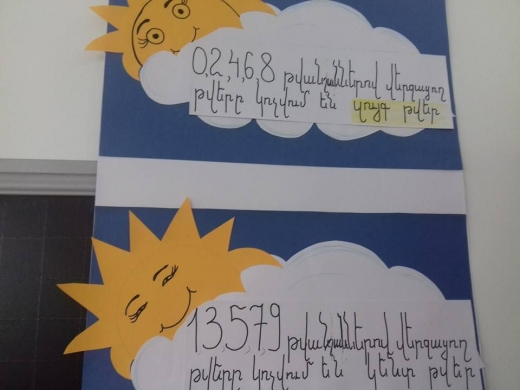 0,2,4,6,8 թվանշաններով վերջացող
թվերը կոչվում են զույգ թվեր
1,3,5,7,9 թվանշաններով վերջացող
թվերը կոչվում են կենտ թվեր